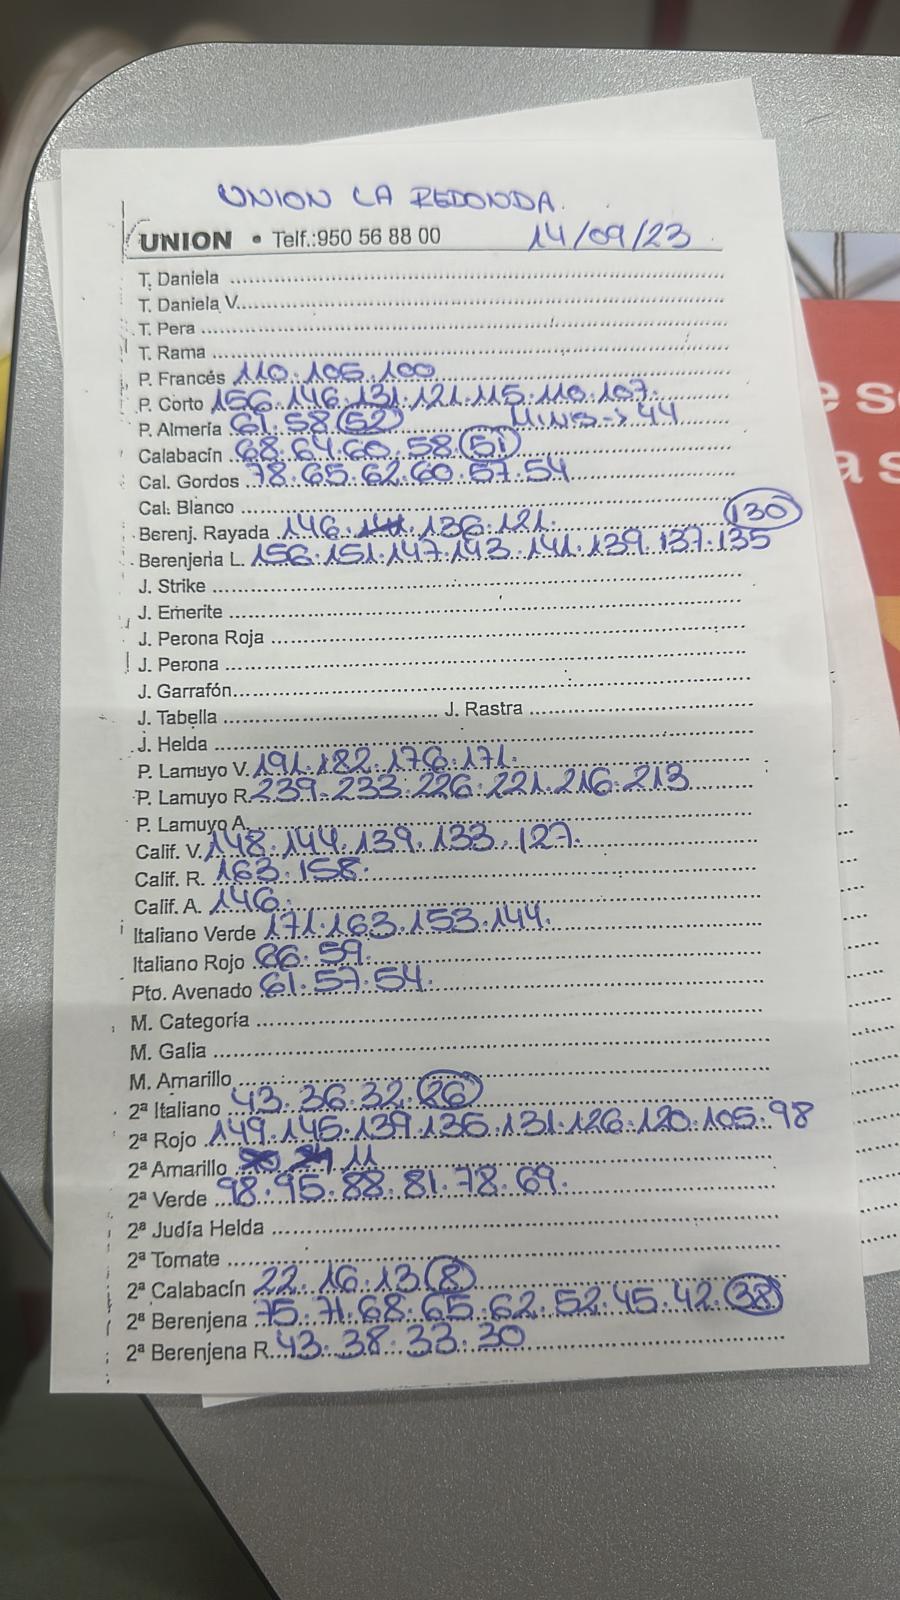 UNION LA REDONDA.
UNION • Telf.:950 56 88 00 14/09/23
T. Daniela
T. Daniela V.
T. Pera
T. Rama
P. Francés 110. 105. 100
P. Corto 156. 146. 131. 121. 115. 110. 107.
P. Almería 61. 58. 52 MINIS -> 44
Calabacín 68. 64. 60. 58. 51
Cal. Gordos 78. 65. 62. 60. 57. 54
Cal. Blanco
Berenj. Rayada 146. 136. 121. 130
Berenjena L. 156. 151. 147. 143. 141. 139. 137. 135
J. Strike
J. Emerite
J. Perona Roja
J. Perona
J. Garrafón
J. Tabella J. Rastra
J. Helda
P. Lamuyo V. 191. 182. 176. 171.
P. Lamuyo R. 239. 233. 226. 221. 216. 213
P. Lamuyo A.
Calif. V. 148. 144. 139. 133. 127.
Calif. R. 163. 158.
Calif. A. 146.
Italiano Verde 171. 163. 153. 144.
Italiano Rojo 66. 59.
Pto. Avenado 61. 57. 54.
M. Categoría
M. Galia
M. Amarillo
2ª Italiano 43. 36. 32. 26
2ª Rojo 149. 145. 139. 135. 131. 126. 120. 105. 98
2ª Amarillo 11
2ª Verde 98. 95. 88. 81. 78. 69.
2ª Judía Helda
2ª Tomate
2ª Calabacín 22. 16. 13. 8
2ª Berenjena 75. 71. 68. 65. 62. 52. 45. 42. 38
2ª Berenjena R. 43. 38. 33. 30